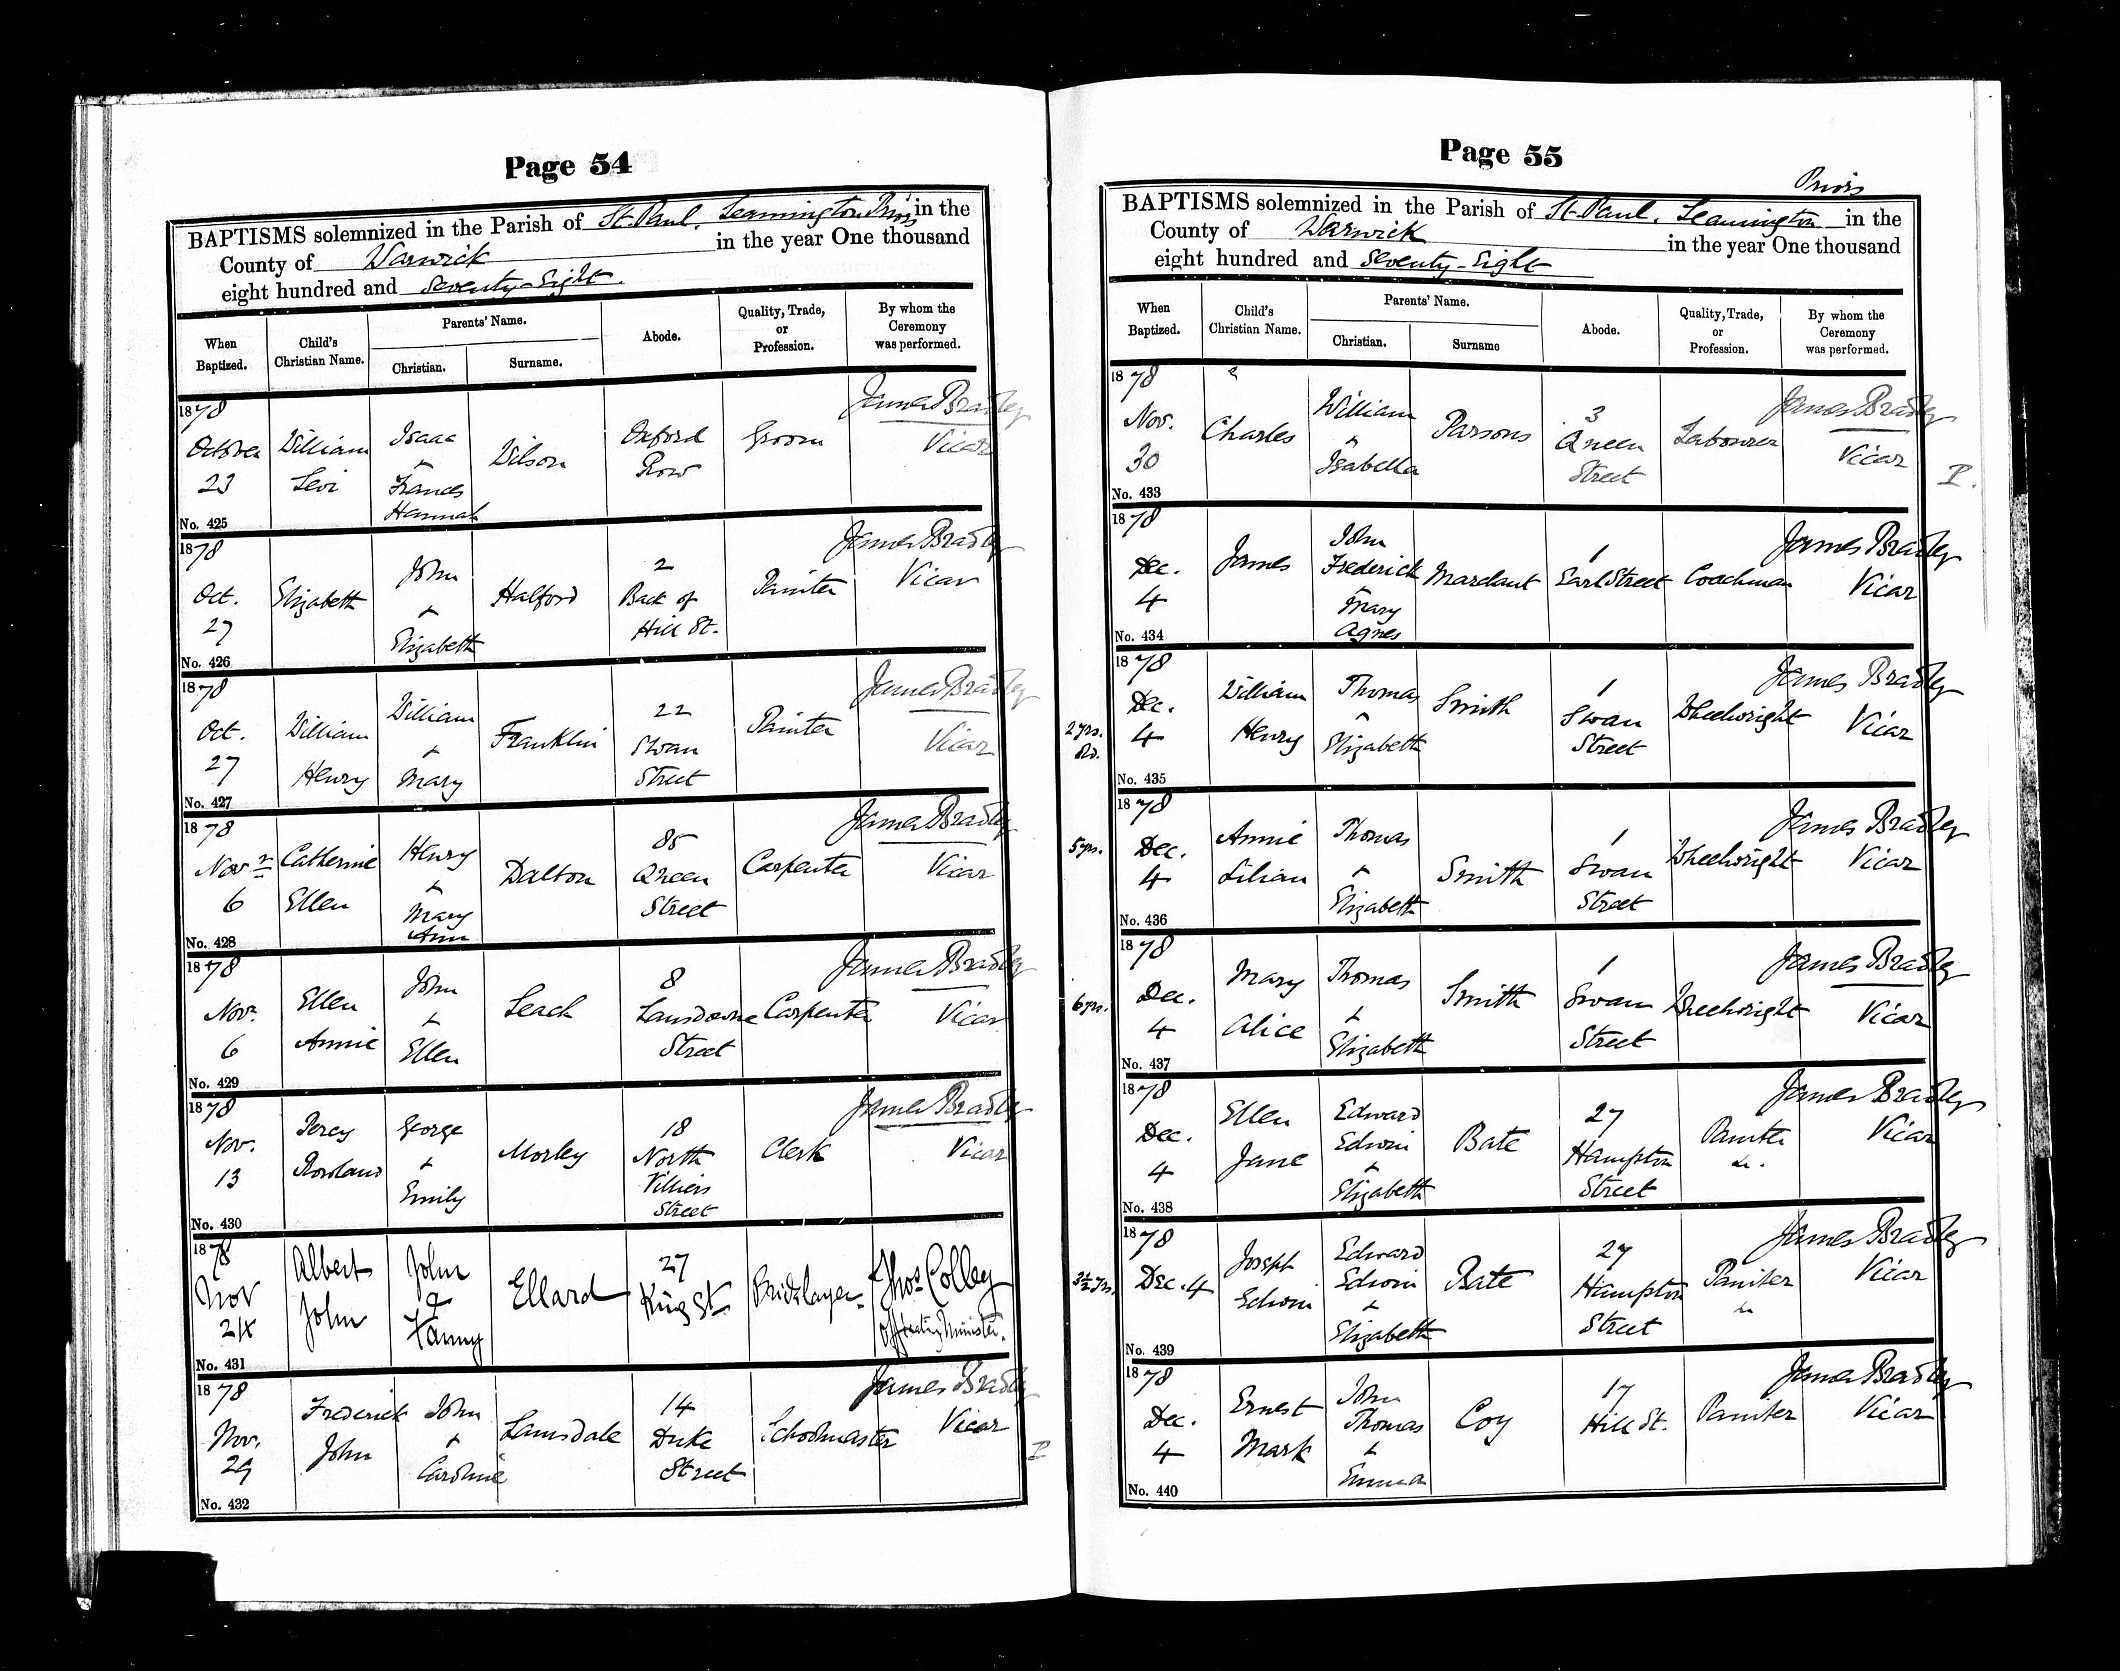 Page 54
BAPTISMS solemnized in the Parish of St. Paul, Leamington Priors in the
County of Warwick in the year One thousand
eight hundred and Seventy-Eight.
When Baptized.
Child's Christian Name.
Parents' Name.
Christian.
Surname.
Abode.
Quality, Trade, or Profession.
By whom the Ceremony was performed.
1878
October
23
No. 425
William
Levi
Isaac
&
Frances
Hannah
Wilson
Oxford
Row
Groom
James Bradley
Vicar
1878
Oct.
27
No. 426
Elizabeth
John
&
Elizabeth
Halford
2
Back of
Hill St.
Painter
James Bradley
Vicar
1878
Oct.
27
No. 427
William
Henry
William
&
Mary
Franklin
22
Swan
Street
Painter
James Bradley
Vicar
1878
Novr
6
No. 428
Catherine
Ellen
Henry
&
Mary
Ann
Dalton
85
Queen
Street
Carpenter
James Bradley
Vicar
1878
Nov.
6
No. 429
Ellen
Annie
John
&
Ellen
Leach
8
Lansdowne
Street
Carpenter
James Bradley
Vicar
1878
Nov.
13
No. 430
Percy
Rowland
George
&
Emily
Morley
18
North
Villiers
Street
Clerk
James Bradley
Vicar
1878
Nov
24
No. 431
Albert
John
John
&
Fanny
Ellard
27
King St.
Bricklayer
Thos. Colley
Officiating Minister.
1878
Nov.
29
No. 432
Frederick
John
John
&
Caroline
Lansdale
14
Duke
Street
Schoolmaster
James Bradley
Vicar
P
Page 55
Priors
BAPTISMS solemnized in the Parish of St. Paul, Leamington in the
County of Warwick in the year One thousand
eight hundred and Seventy-Eight
When Baptized.
Child's Christian Name.
Parents' Name.
Christian.
Surname
Abode.
Quality, Trade, or Profession.
By whom the Ceremony was performed.
1878
Nov.
30
No. 433
Charles
William
&
Isabella
Parsons
3
Queen
Street
Labourer
James Bradley
Vicar
P.
1878
Dec.
4
No. 434
James
John
Frederick
&
Mary
Agnes
Mardant
1
Earl Street
Coachman
James Bradley
Vicar
2 yrs.
old.
1878
Dec.
4
No. 435
William
Henry
Thomas
&
Elizabeth
Smith
1
Swan
Street
Wheelwright
James Bradley
Vicar
5 yrs.
1878
Dec.
4
No. 436
Annie
Lilian
Thomas
&
Elizabeth
Smith
1
Swan
Street
Wheelwright
James Bradley
Vicar
6 yrs.
1878
Dec.
4
No. 437
Mary
Alice
Thomas
&
Elizabeth
Smith
1
Swan
Street
Wheelwright
James Bradley
Vicar
1878
Dec.
4
No. 438
Ellen
Jane
Edward
Edwin
&
Elizabeth
Bate
27
Hampton
Street
Painter
James Bradley
Vicar
3½ yrs.
1878
Dec. 4
No. 439
Joseph
Edwin
Edward
Edwin
&
Elizabeth
Bate
27
Hampton
Street
Painter
James Bradley
Vicar
1878
Dec.
4
No. 440
Ernest
Mark
John
Thomas
&
Emma
Coy
17
Hill St.
Painter
James Bradley
Vicar